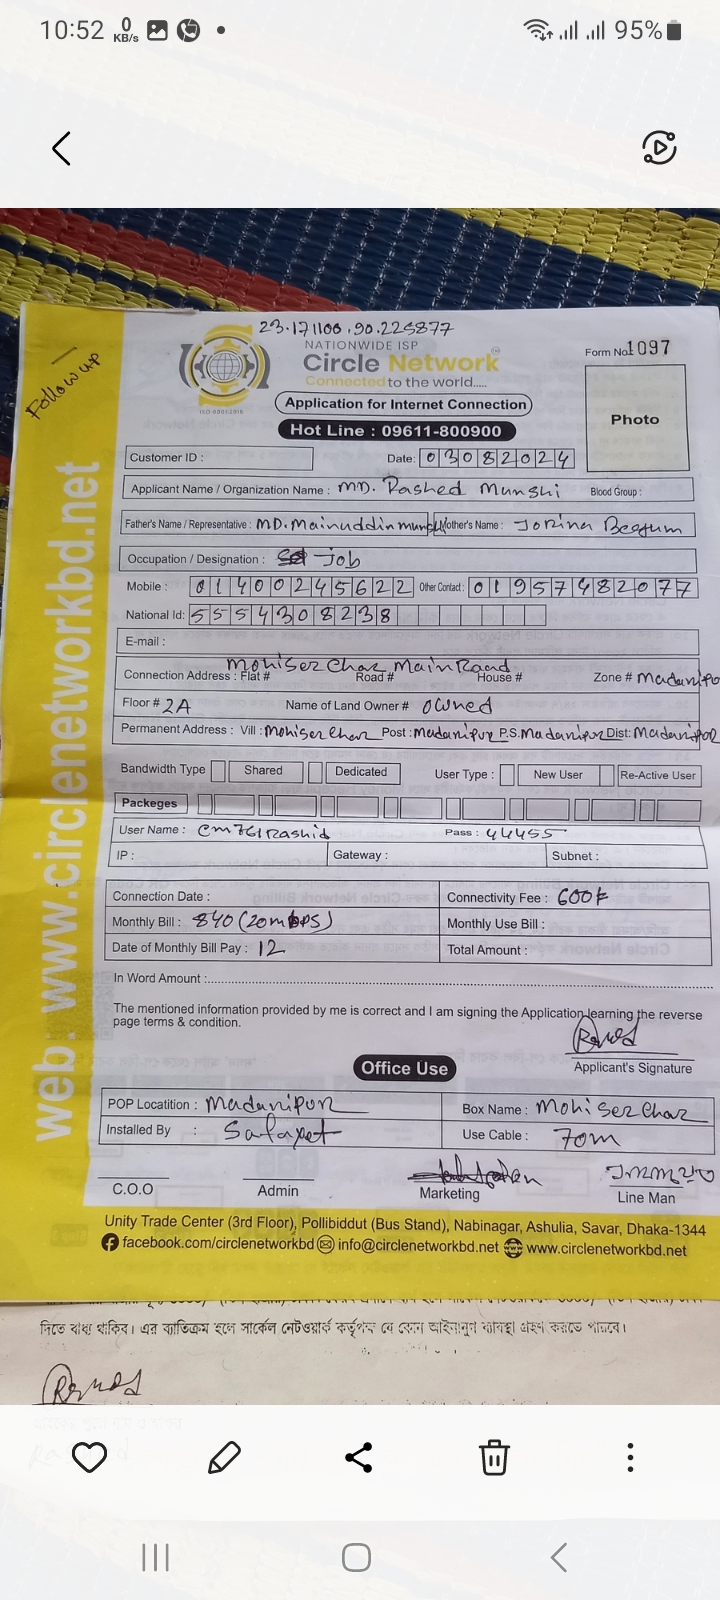 10:52 0 KB/s 95%
23.171100, 90.225877
NATIONWIDE ISP
Circle Network
Connected to the world.....
ISO 9001:2015
Form No. 1097
Follow up
Application for Internet Connection
Photo
Hot Line : 09611-800900
Customer ID : Date: 03082024
Applicant Name / Organization Name : MD. Rashed Munshi Blood Group :
Father's Name / Representative : MD. Mainuddin munshi Mother's Name : Jorina Beegum
Occupation / Designation : job
Mobile : 01400245622 Other Contact : 01957482077
National Id: 5554308238
E-mail :
Mohiser Char Main Road
Connection Address : Flat # Road # House # Zone # Madaripo
Floor # 2A Name of Land Owner # owned
Permanent Address : Vill : Mohiser Char Post : Madaripur P.S. Madaripur Dist: Madaripor
Bandwidth Type Shared Dedicated User Type : New User Re-Active User
Packeges
User Name : cm761rashid Pass : 44455
IP : Gateway : Subnet :
Connection Date : Connectivity Fee : 600৳
Monthly Bill : 840 (20mbps) Monthly Use Bill :
Date of Monthly Bill Pay : 12 Total Amount :
In Word Amount :
The mentioned information provided by me is correct and I am signing the Application learning the reverse
page terms & condition.
Applicant's Signature
Office Use
POP Locatition : Madaripor Box Name : Mohiser Char
Installed By : Safayet Use Cable : 70m
C.O.O Admin Marketing Line Man
Unity Trade Center (3rd Floor), Pollibiddut (Bus Stand), Nabinagar, Ashulia, Savar, Dhaka-1344
facebook.com/circlenetworkbd info@circlenetworkbd.net www.circlenetworkbd.net
web: www.circlenetworkbd.net
দিতে বাধ্য থাকিব। এর ব্যতিক্রম হলে সার্কেল নেটওয়ার্ক কর্তৃপক্ষ যে কোন আইনানুগ ব্যবস্থা গ্রহণ করতে পারবে।